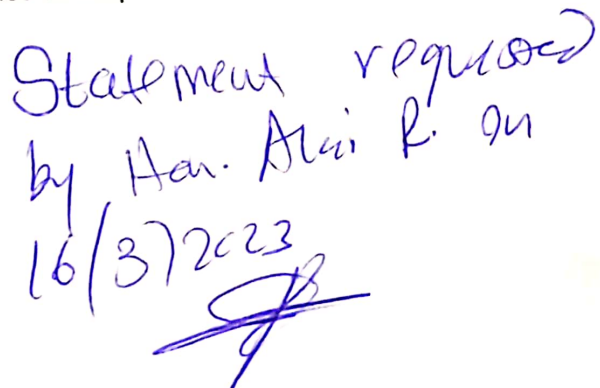 Statement requested
by Hon. Alai R. on
16/3/2023